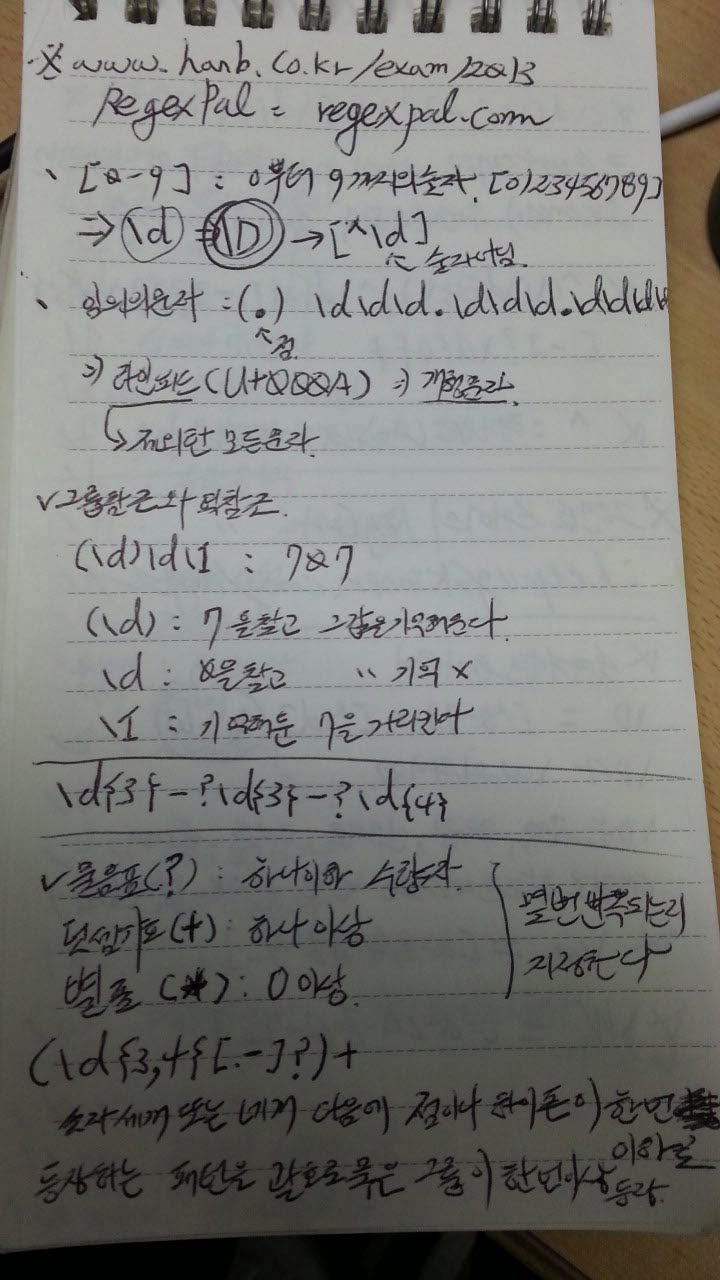 ※ www.hanb.co.kr/exam/2013
RegexPal = regexpal.com
、[0-9] : 0부터 9까지의 숫자. [0123456789]
⇒ \d = \D → [^\d]
↖ 숫자아님.
、임의의문자 : (.) \d\d\d.\d\d\d.\d\d\d\
↖점.
⇒ 라인피드(U+000A) ⇒ 개행문자.
↳ 제외한 모든문자.
✓그룹참조와 역참조.
(\d)\d\1 : 707
(\d) : 7을찾고 그값을기억해둔다.
\d : 0을찾고 〃 기억 x
\1 : 기억해둔 7을 가리킨다
\d{3}-?\d{3}-?\d{4}
✓물음표(?) : 하나이하 수량자.
덧셈기호(+) : 하나 이상
별표 (*) : 0 이상.
몇번 반복되는지
지정한다
(\d{3,4}[.-]?)+
숫자세개 또는 네개 다음에 점이나 하이폰이 한번
이하로
등장하는 패턴을 괄호로묶은 그룹이 한번이상
등장.